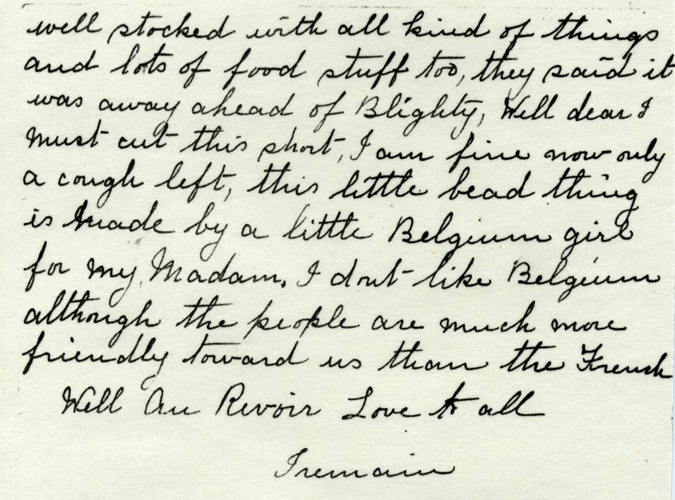 well stocked with all kind of things
and lots of food stuff too, they said it
was away ahead of Blighty, Well dear I
must cut this short, I am fine now only
a cough left, this little bead thing
is made by a little Belgium girl
for my Madam. I dont like Belgium
although the people are much more
friendly toward us than the French
Well Au Revoir Love to all
Iremain